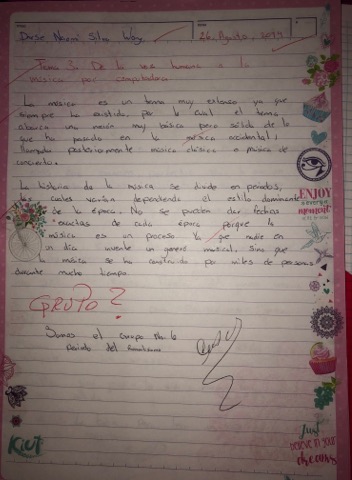 26. Agosto, 2019
Tema 3: De la voz humana a la
música por computadora
La música es un tema muy extenso ya que
siempre ha existido, por lo cual el tema
abarca una noción muy básica pero sólida de lo
que ha pasado en la música occidental,
llamada posteriormente música clásica o música de
concierto.
La historia de la música se divide en periodos,
los cuales varían dependiendo el estilo dominante
de la época. No se pueden dar fechas
exactas de cada época porque la
música es un proceso Ya que nadie en
un día invente un genero musical. Sino que
la música se ha construido por miles de personas
durante mucho tiempo.
GRUPO?
Somos el Grupo No. 6
Periodo del Romanticismo
ENJOY
every
moment
Kiut
Just
believe in your
dreams